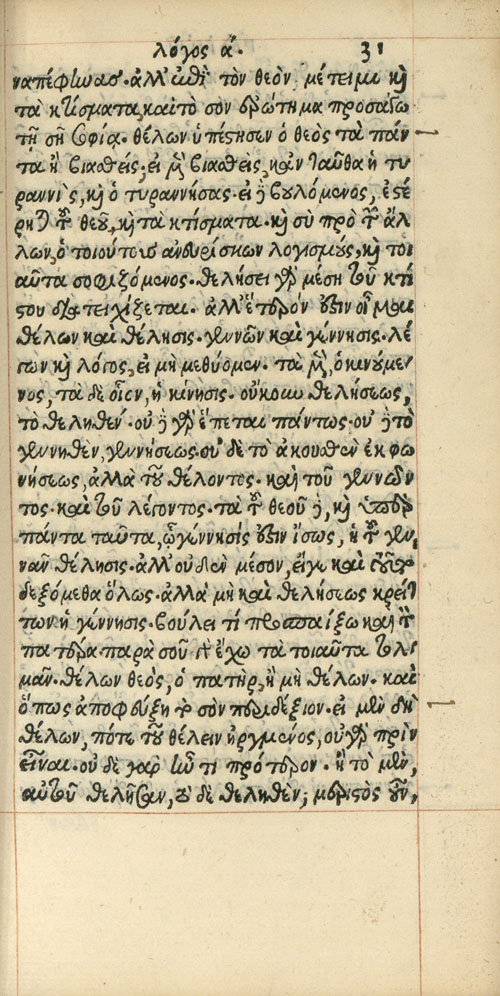 λόγος α. 31
ναπέφηνας· ἀλλ' ἐπὶ τὸν θεὸν μέτειμι καὶ
τὰ κτίσματα, καὶ τὸ σὸν ἐρώτημα προσάξω
τῇ σῇ σοφίᾳ· θέλων ὑπέστησεν ὁ θεὸς τὰ πάν
τα ἢ βιασθείς; εἰ μὲν βιασθείς, κἀνταῦθα ἡ τυ
ραννὶς, καὶ ὁ τυραννήσας· εἰ δὲ βουλόμενος, ἐστέ
ρηται τοῦ θεοῦ, καὶ τὰ κτίσματα· καὶ σὺ πρὸ τῶν ἄλ
λων, ὁ τοιούτους ἀνευρίσκων λογισμούς, καὶ τοι
αῦτα σοφιζόμενος· θελήσει γὰρ μέση τοῦ κτί
στου διατειχίζεται. ἀλλ' ἕτερον ἐστὶν οἶμαι
θέλων καὶ θέλησις· γεννῶν καὶ γέννησις· λέ
γων καὶ λόγος, εἰ μὴ μεθύομεν· τὰ μὲν, ὁ κινούμε
νος, τὰ δὲ οἷον, ἡ κίνησις· οὔκουν θελήσεως,
τὸ θεληθέν· οὐ δὲ γὰρ ἕπεται πάντως· οὐ δὲ τὸ
γεννηθὲν, γεννήσεως· οὐ δὲ τὸ ἀκουσθὲν ἐκφω
νήσεως, ἀλλὰ τοῦ θέλοντος· καὶ τοῦ γεννῶν
τος· καὶ τοῦ λέγοντος· τὰ τοῦ θεοῦ δὲ, καὶ ὑπὲρ
πάντα ταῦτα, ᾧ γέννησίς ἐστιν ἴσως, ἡ τοῦ γεν
νᾶν θέλησις· ἀλλ' οὐδὲν μέσον, εἴγε καὶ τοῦτο
δεξόμεθα ὅλως· ἀλλὰ μὴ καὶ θελήσεως κρείτ
των ἡ γέννησις· βούλει τί προσπαίξω καὶ τὸν
πατέρα· παρὰ σοῦ γὰρ ἔχω τὰ τοιαῦτα τολ
μᾶν. θέλων θεὸς, ὁ πατὴρ, ἢ μὴ θέλων· καὶ
ὅπως ἀποφεύξῃ τὸ σὸν περιδέξιον· εἰ μὲν δὴ
θέλων, πότε τοῦ θέλειν ἠργμένος, οὐ γὰρ πρὶν
εἶναι· οὐ δὲ γὰρ ἦν τι πρότερον· ἢ τὸ μὲν,
αὐτοῦ θελῆσαν, τὸ δὲ θεληθὲν; μεριστὸς οὖν,